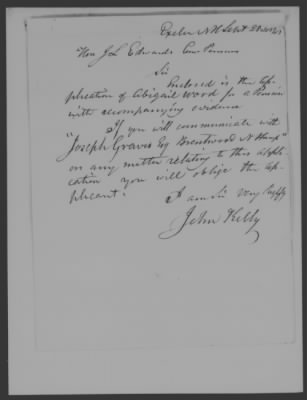 Exeter NH Sept
Hon J L Edwards Com Pensions
Sir
Enclosed is the ap-
plication of Abigail Wood for a Pension
with accompanying evidence
If you will communicate with
"Joseph Graves Esq Brentwood N Hamp"
on any matter relating to this appli-
cation you will oblige the ap-
plicant.
I am Sir very
John Kelly